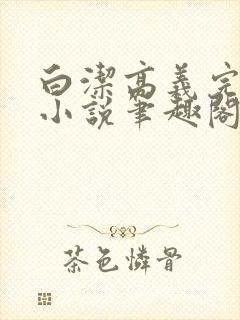 白潔高義完
小説筆趣閣
茶色憐骨